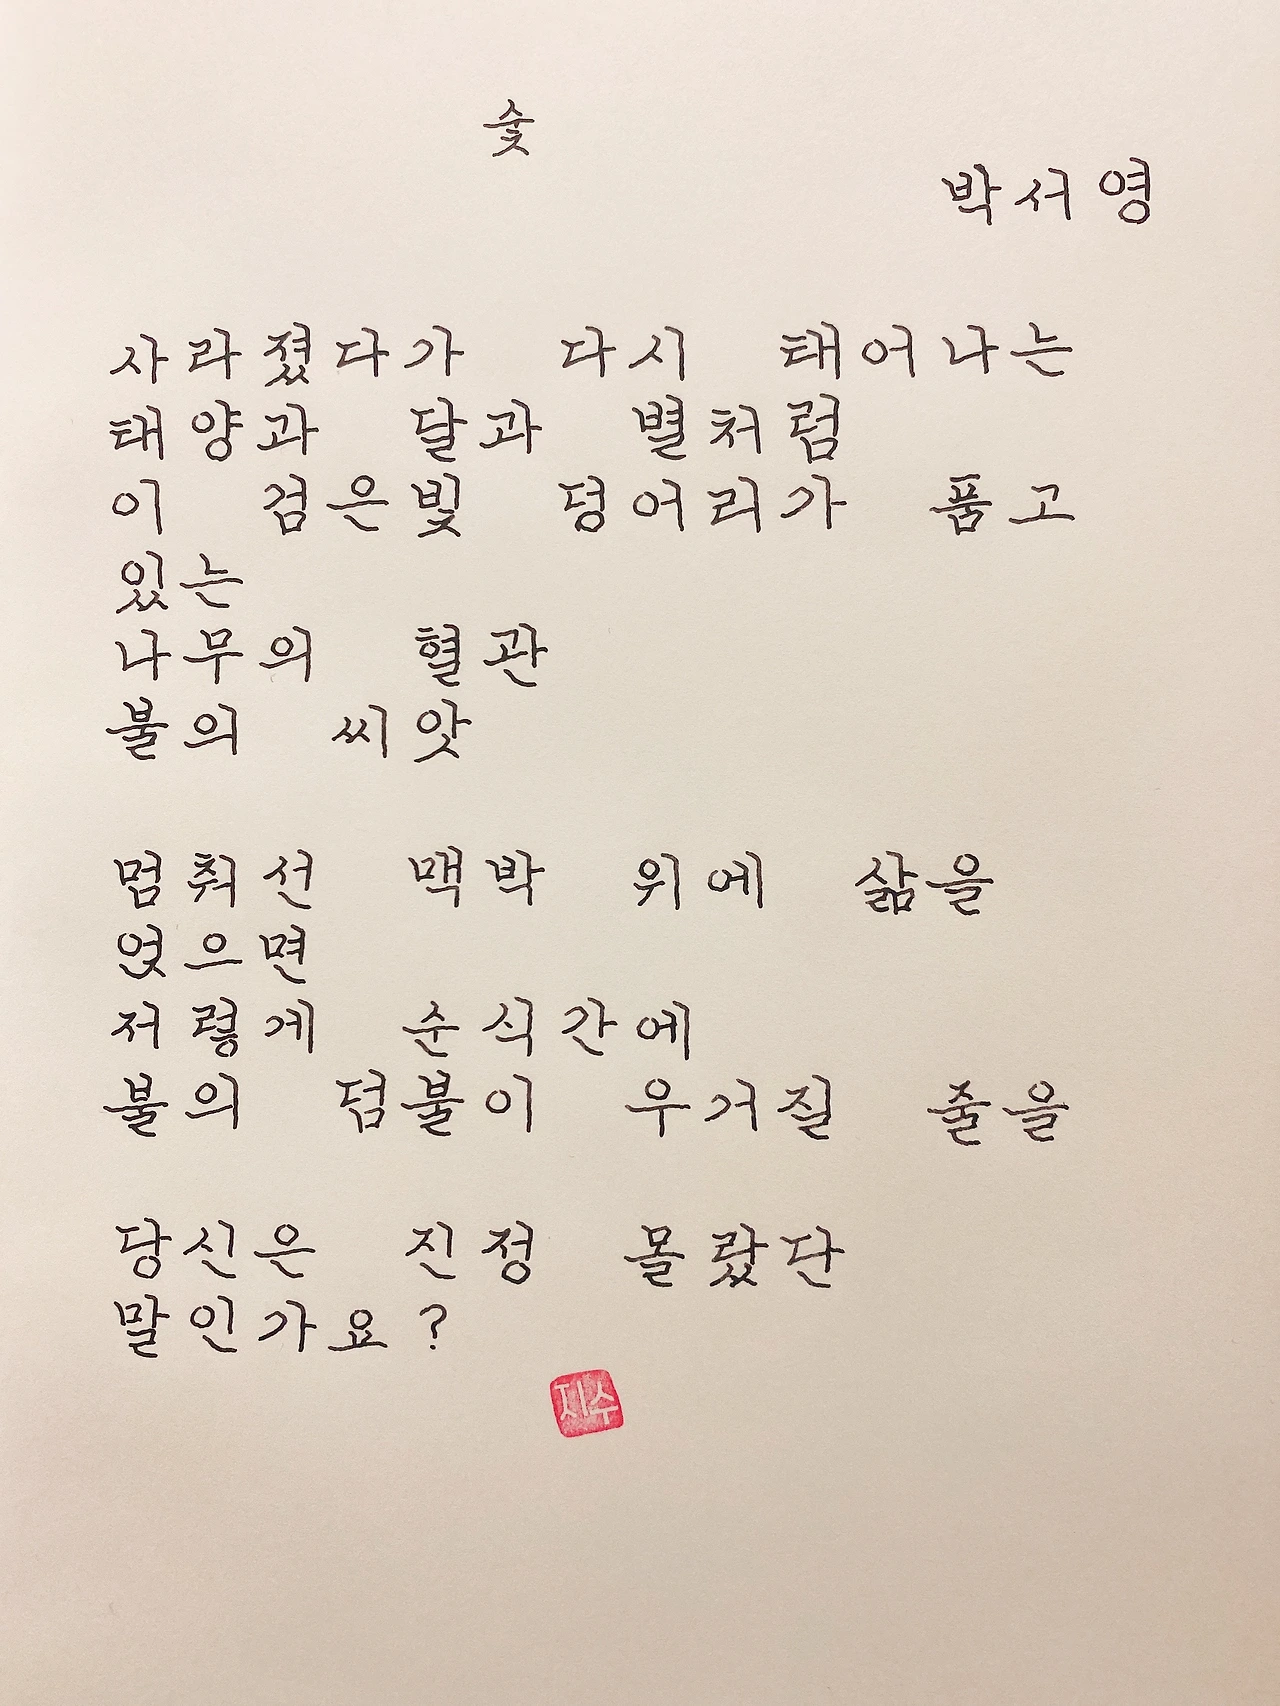 숯
박서영
사라졌다가 다시 태어나는
태양과 달과 별처럼
이 검은빛 덩어리가 품고
있는
나무의 혈관
불의 씨앗
멈춰선 맥박 위에 삶을
얹으면
저렇게 순식간에
불의 덤불이 우거질 줄을
당신은 진정 몰랐단
말인가요?
지수